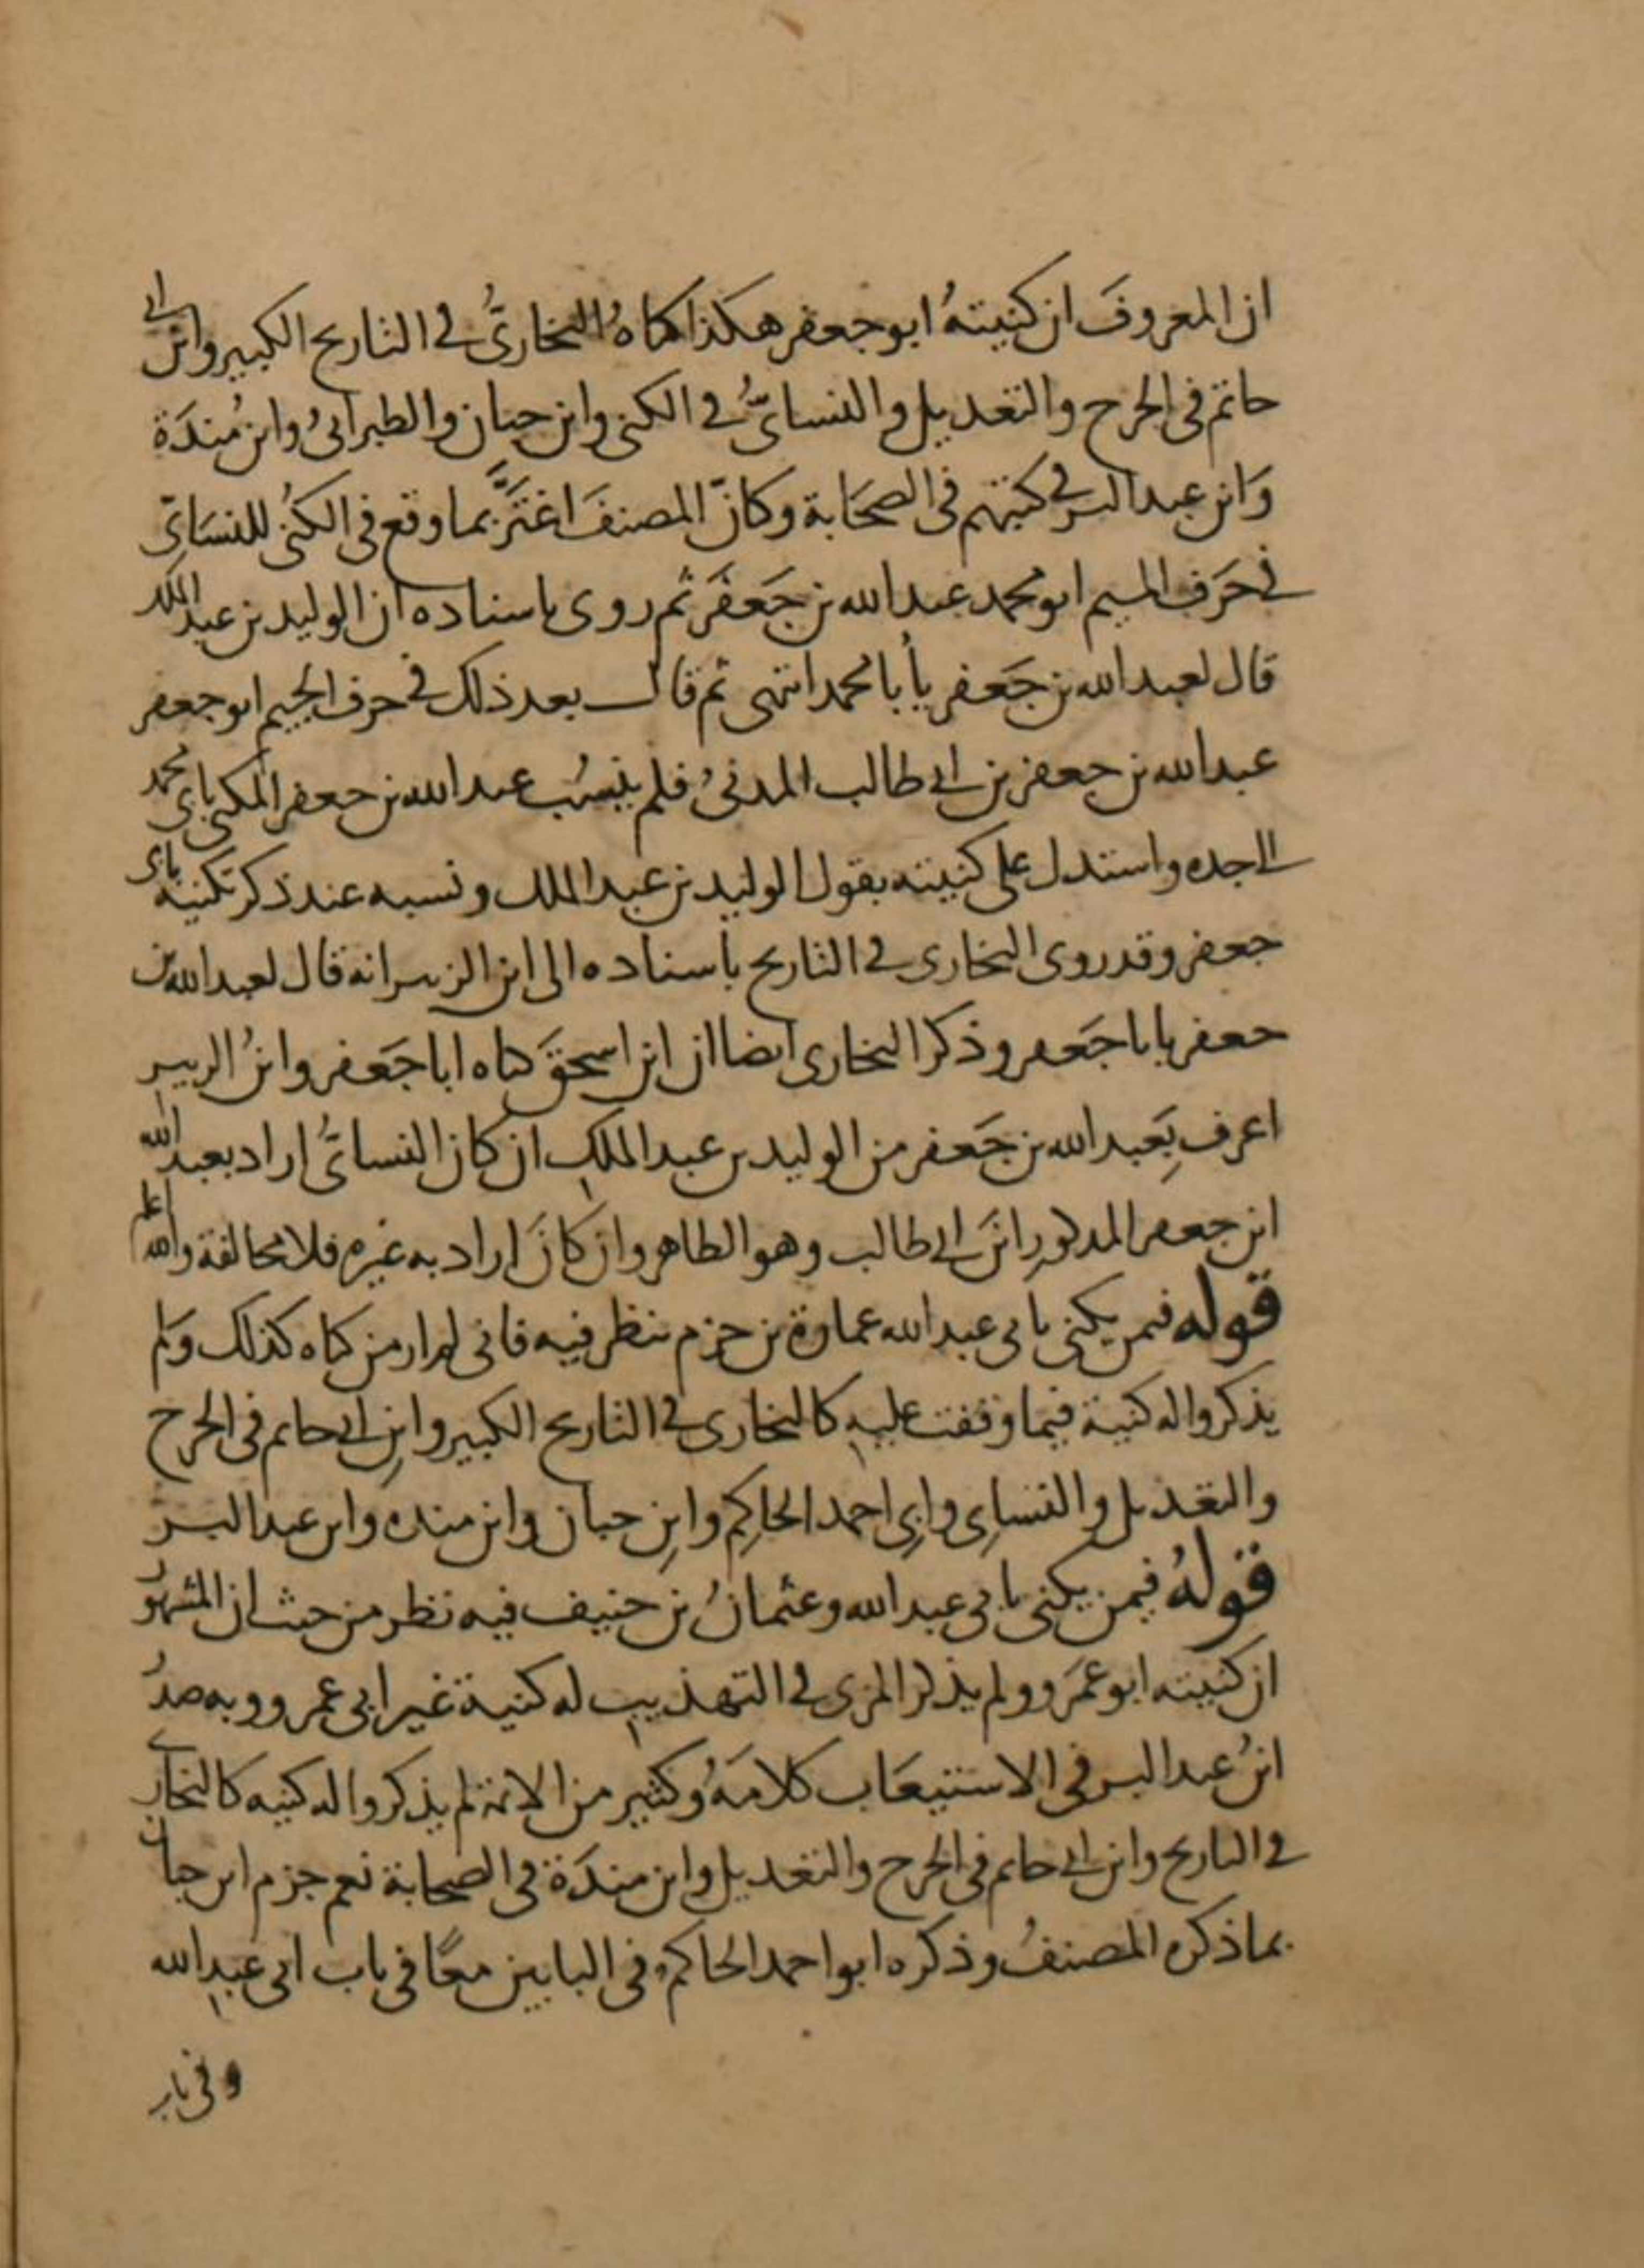 ان المعروفَ ان كنيتهُ ابو جعفر هكذا كناهُ البخاريُّ في التاريح الكبير وابن ابي
حاتم في الجرح والتعديل والنسائيُّ في الكنى وابن حبان والطبرانيُ وابن مُندَة
وَابن عبد البر في كتبهم في الصحَابة وكانّ المصنفَ اغترَّ بما وقع في الكنى للنسَائيّ
في حَرف الميم ابو محمد عبد الله بن جَعفَر ثم روى باسناده ان الوليد بن عبد الملك
قال لعبد الله بن جَعفر يأبا محمد انتهى ثم قال بعد ذلك في حرف الجيم ابو جعفر
عبد الله بن جعفر بن ابي طالب المدنيُ فلم ينسُب عبد الله بن جعفر المكنى بابي محمد
الى جده واستدل على كنيته بقول الوليد بن عبد الملك ونسبه عند ذكر تكنيته بابي
جعفر وقد روى البخارى في التاريح باسناده الى ابن الزبير انه قال لعبد الله بن
جعفر يابا جَعفر وذكر البخارى ايضا ان ابن اسحقَ كناه ابا جَعفر وابنُ الزبير
اعرف بِعَبد الله بن جَعفر من الوليد بن عبد الملك ان كان النسائيُّ اراد بعبد الله
ابن جعفر المذكورِ ابنَ ابي طالب وهو الظاهر وان كانَ اراد به غيره فلا مخالفة والله اعلم
قوله فيمن يكنى بابي عبد الله عمارة بن حزم ينظر فيه فاني لم ار من كناه كذلك وَلم
يذكروا له كنية فيما وقفت عليه كالبخارى في التاريح الكبير وابنِ ابي حاتم في الجرح
والتعديل والنسايِ وابِي احمد الحاكِم وابنِ حبان وابن منده وابن عبد البر
قولهُ فيمن يكنى بابي عبد الله وعثمانُ بن حنيف فيه نظر من حيث ان المشهور
ان كنيته ابو عمَرو ولم يذكر المزى في التهذيب له كنية غير ابي عمرو وبه صدر
ابنُ عبد البر في الاستيعَاب كلامَهُ وكثير من الائمة لم يذكروا له كنيه كالبخاري
في التاريح وابن ابي حاتم في الجرح والتعديل وابن مندَة في الصحابة نعم جزم ابن حبان
بما ذكره المصنفُ وذكره ابو احمد الحاكمُ في البابين معًا في باب ابي عبد الله
وفي باب